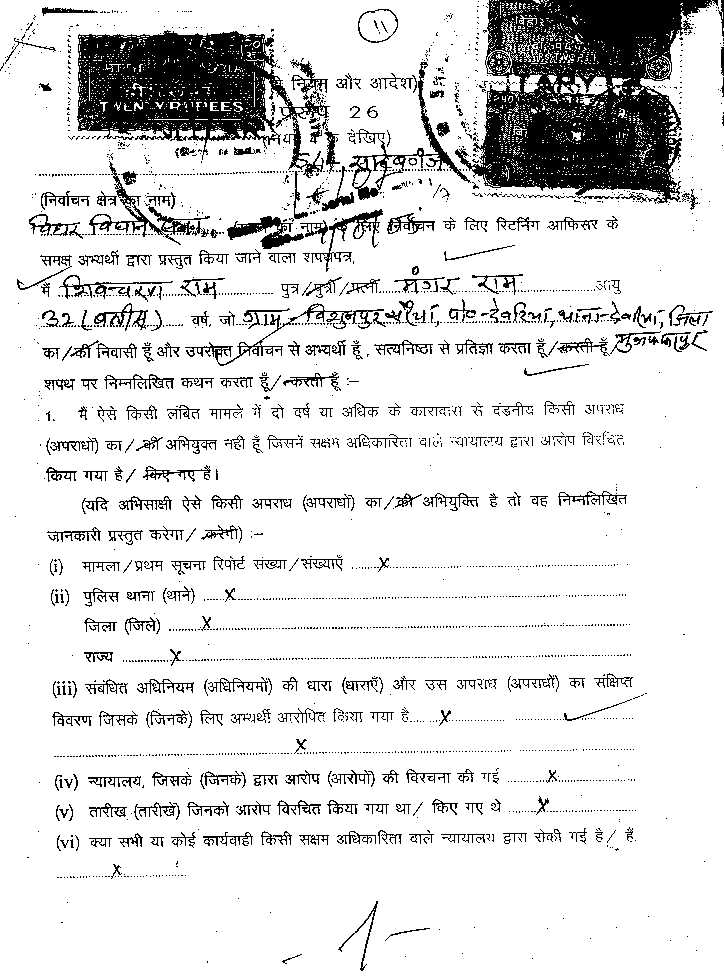 11
TWENTY RUPEES
नियम और आदेश)
प्ररूप 26
देखिए)
54- साहेबगंज
(निर्वाचन क्षेत्र का नाम)
बिहार विधान सभा (सदन का नाम) के लिए निर्वाचन के लिए रिटर्निंग आफिसर के
समक्ष अभ्यर्थी द्वारा प्रस्तुत किया जाने वाला शपथपत्र,
मैं शिवचरण राम पुत्र/पुत्री/पत्नी मंगर राम आयु
32 (बत्तीस) वर्ष, जो ग्राम- विशुनपुर पो०-देवरिया, थाना-देवरिया, जिला
मुजफ्फरपुर
का/की निवासी हूँ और उपरोक्त निर्वाचन से अभ्यर्थी हूँ, सत्यनिष्ठा से प्रतिज्ञा करता हूँ/करती हूँ/
शपथ पर निम्नलिखित कथन करता हूँ/करती हूँ :-
1. मैं ऐसे किसी लंबित मामले में दो वर्ष या अधिक के कारावास से दंडनीय किसी अपराध
(अपराधों) का/की अभियुक्त नही हूँ जिसमें सक्षम अधिकारिता वाले न्यायालय द्वारा आरोप विरचित
किया गया है/ किए गए हैं।
(यदि अभिसाक्षी ऐसे किसी अपराध (अपराधों) का/की अभियुक्ति है तो वह निम्नलिखित
जानकारी प्रस्तुत करेगा/ करेगी) :-
(i) मामला/प्रथम सूचना रिपोर्ट संख्या/संख्याएँ ........x
(ii) पुलिस थाना (थाने) .....x
जिला (जिले) .........x
राज्य ...........x
(iii) संबंधित अधिनियम (अधिनियमों) की धारा (धाराएँ) और उस अपराध (अपराधों) का संक्षिप्त
विवरण जिसके (जिनके) लिए अभ्यर्थी आरोपित किया गया है......x
x
(iv) न्यायालय, जिसके (जिनके) द्वारा आरोप (आरोपों) की विरचना की गई ..........x
(v) तारीख (तारीखें) जिनको आरोप विरचित किया गया था/ किए गए थे ........x
(vi) क्या सभी या कोई कार्यवाही किसी सक्षम अधिकारिता वाले न्यायालय द्वारा रोकी गई है/ हैं.
x
-1-